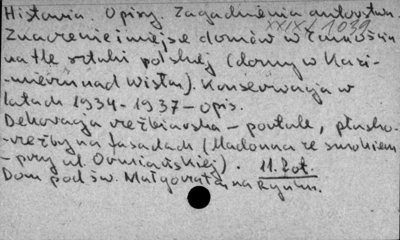 Historia. Opisy Zagadnienia autorstwa.
XIX 1.039
Znaczenie i miejsce domów w Zamościu
na tle sztuki polskiej (domy w Kazi-
-mierzu nad Wisłą). Konserwacja w
latach 1934-1937 - opis.
Dekoracja rzeźbiarska - portale, płasko-
-rzeźby na fasadach (Madonna ze smokiem
- przy ul. Ormiańskiej). 11. fot.
Dom pod św. Małgorzatą na Rynku.